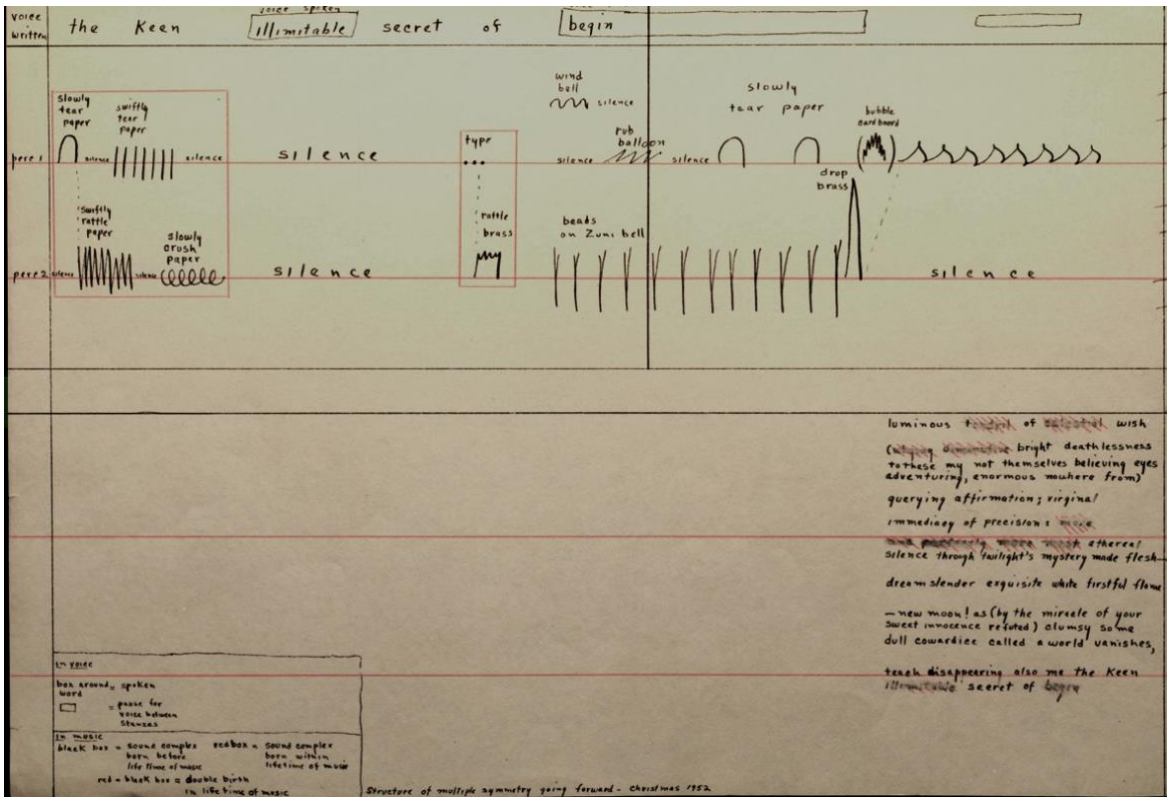 voice spoken
voice written
the Keen illimitable secret of begin
slowly tear paper
swiftly tear paper
wind bell
silence
slowly tear paper
bubble cardboard
type
rub balloon
perc 1 silence silence silence silence silence
drop brass
swiftly rattle paper
slowly crush paper
rattle brass
beads on Zuni bell
perc 2 silence silence silence silence
luminous of celestial wish
bright deathlessness
to these my not themselves believing eyes
adventuring, enormous nowhere from)
querying affirmation; virginal
immediacy of precision: more
and perfectly more most ethereal
silence through twilight's mystery made flesh—
dreamslender exquisite white firstful flame
—new moon! as (by the miracle of your
sweet innocence refuted) clumsy some
dull cowardice called a world vanishes,
teach disappearing also me the Keen
illimitable secret of begin
in voice
box around word = spoken
= pause for voice between stanzas
in music
black box = sound complex born before life time of music
red box = sound complex born within lifetime of music
red-black box = double birth
in life time of music
Structure of multiple symmetry going forward - Christmas 1952